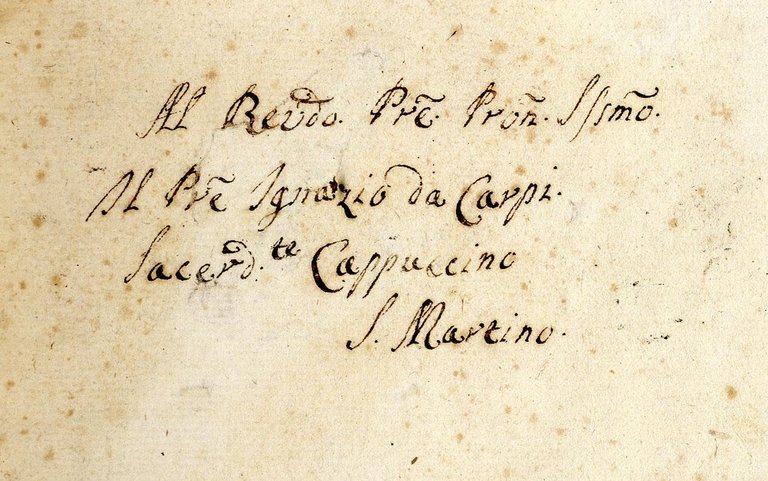 Al Revdo. Prē. Proñ. Sssmo.
Il Prē Ignazio da Carpi.
Sacerd.te Cappuccino
S. Martino.